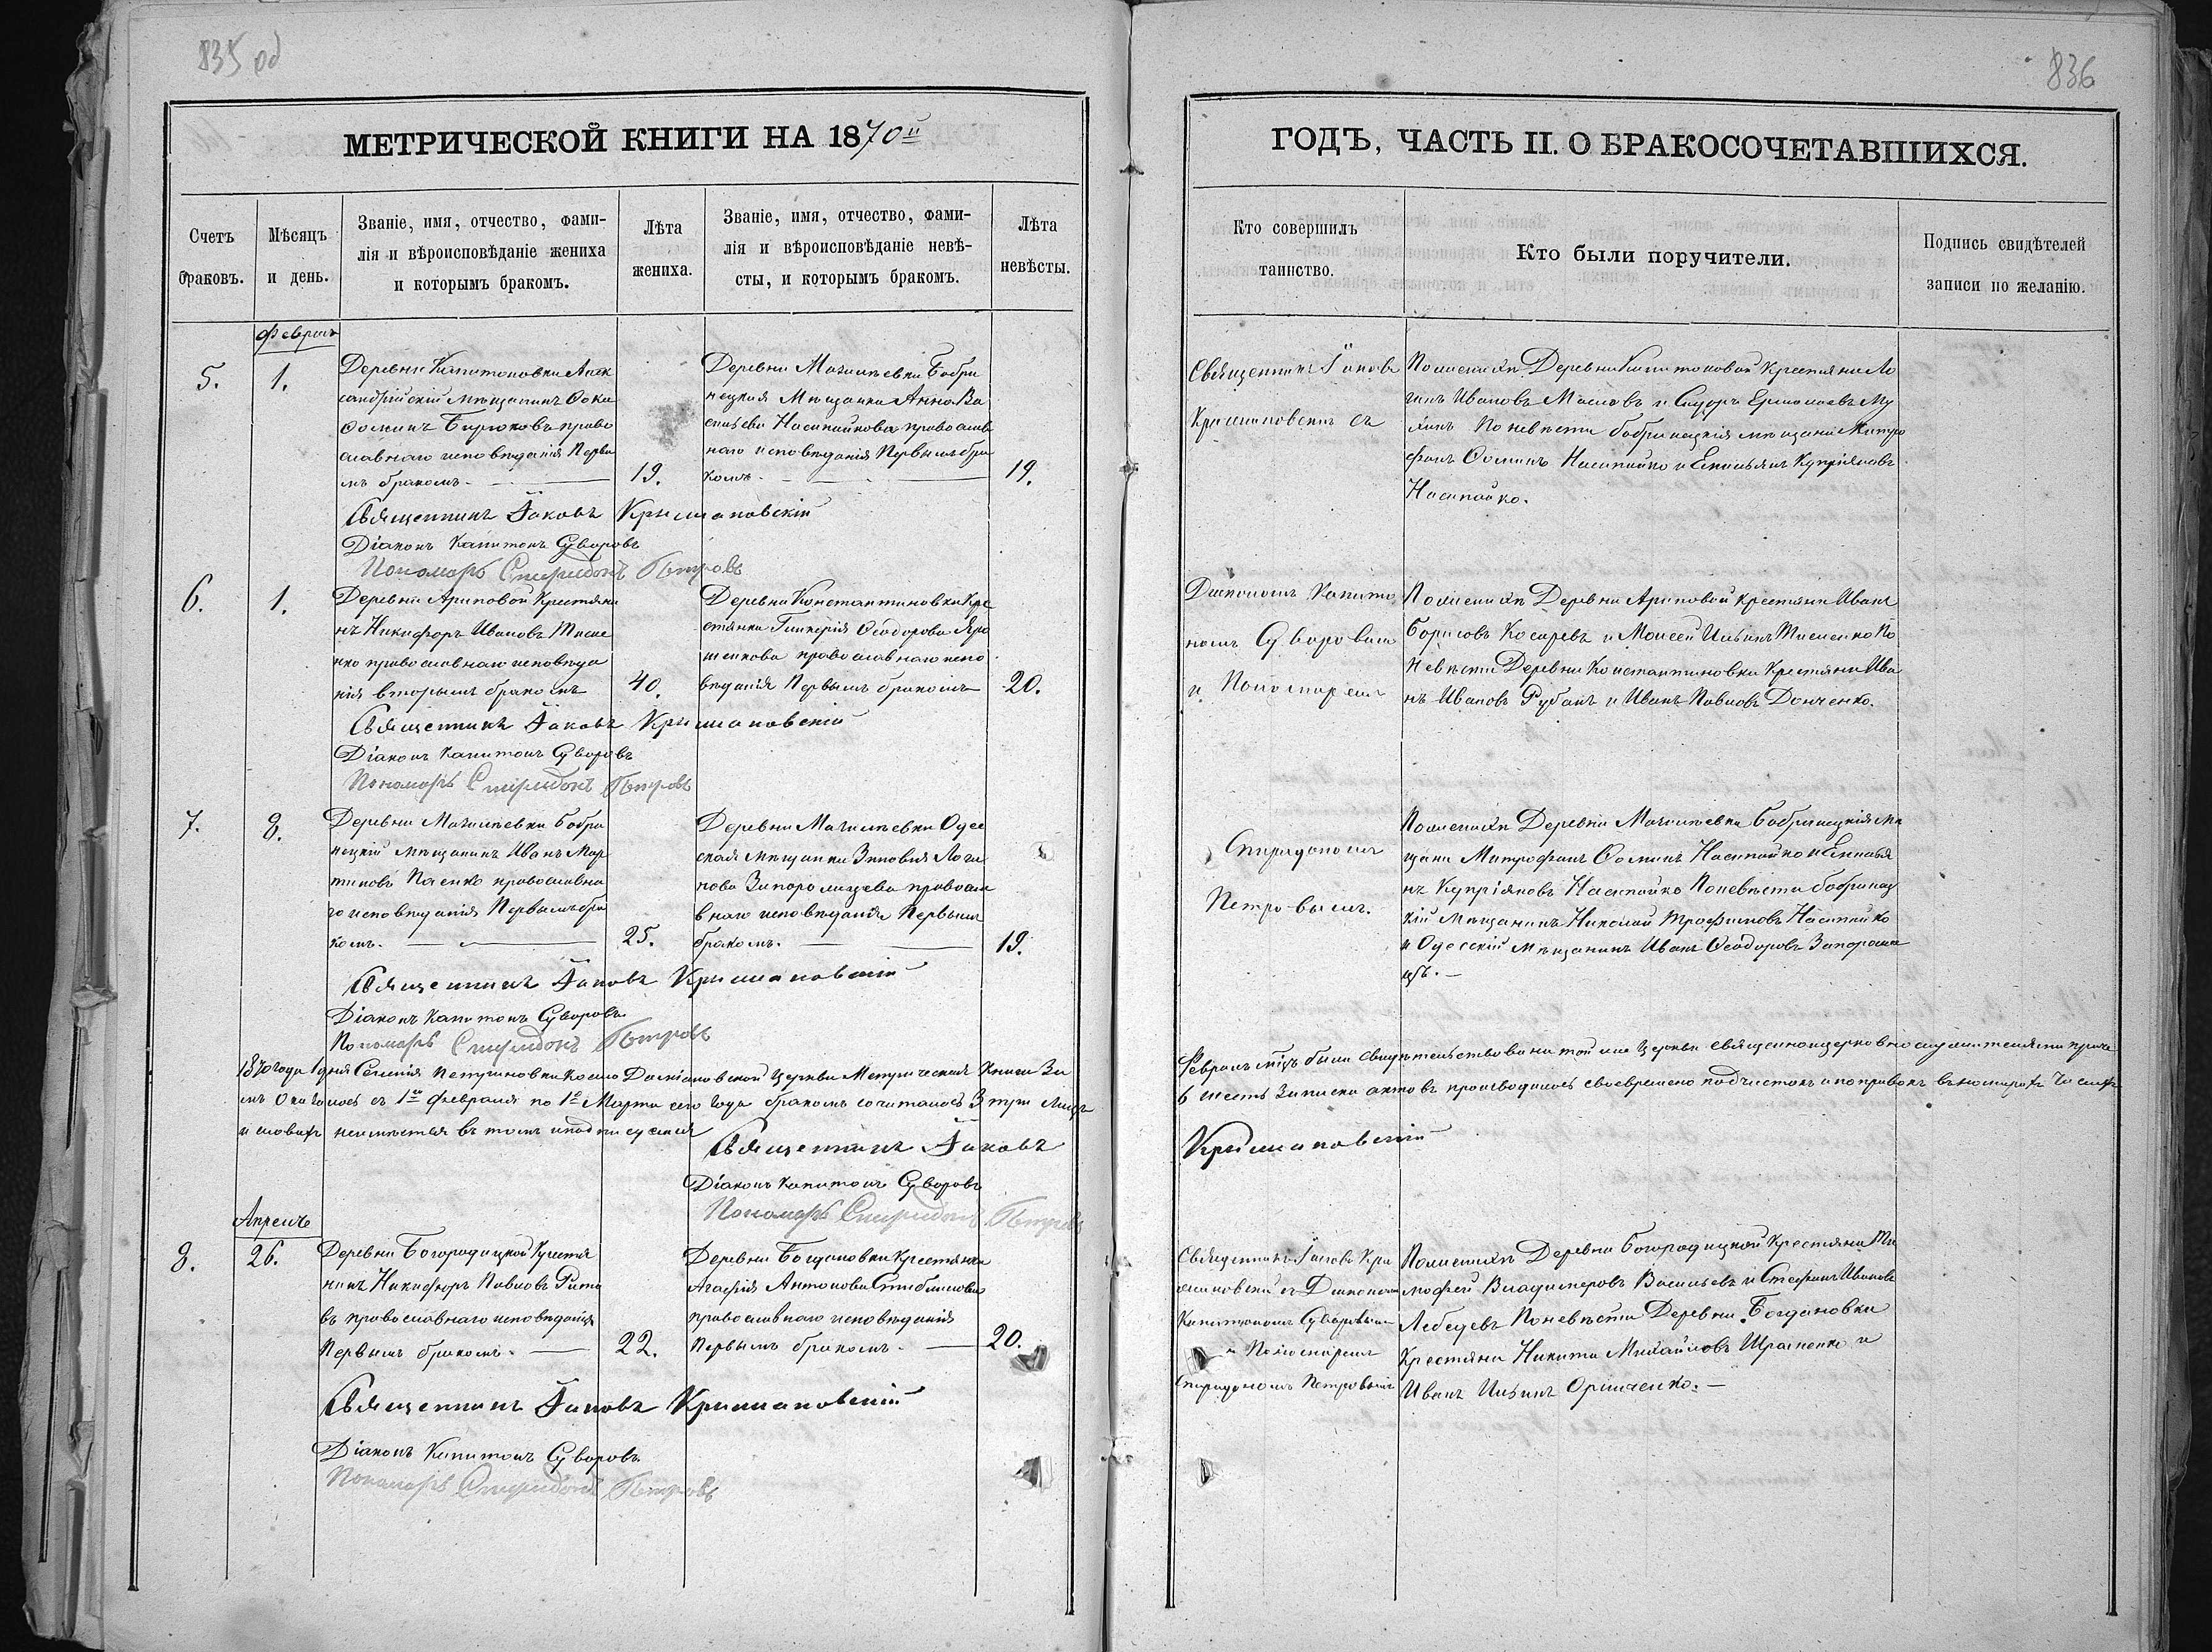 835 об
836
МЕТРИЧЕСКОЙ КНИГИ НА 1870й
ГОДЪ, ЧАСТЬ II. О БРАКОСОЧЕТАВШИХСЯ.
Счетъ
браковъ.
Мѣсяцъ
и день.
Званіе, имя, отчество, фами-
лія и вѣроисповѣданіе жениха
и которымъ бракомъ.
Лѣта
жениха.
Званіе, имя, отчество, фами-
лія и вѣроисповѣданіе невѣ-
сты, и которымъ бракомъ.
Лѣта
невѣсты.
Кто совершилъ
таинство.
Кто были поручители.
Подпись свидѣтелей
записи по желанію.
Февраль
5.
1.
Деревни Капитоновки Алек
сандрійскій мѣщанинъ Фока
Фоминъ Бирюковъ право
славнаго исповѣданія Первы
мъ бракомъ.
19.
Деревни Могилевки Бобри
нецкая Мѣщанка Анна Ва
сильева Насипайкова православ
наго исповѣданія Первымъ бра
комъ.
19.
Священникъ Іаковъ
Крижановскій съ
По женихѣ Деревни Капитоновой Крестьяне Ло
гинъ Ивановъ Масловъ и Сидоръ Ермолаевъ Му
линъ По невѣсти бобринецкія мѣщани Митро
фанъ Фоминъ Насипайко и Емильянъ Купріяновъ
Насипайко.
Священникъ Іаковъ Крыжановскій
Діаконъ Капитонъ Суворовъ
Пономарь Спиридонъ Петровъ
6.
1.
Деревни Ариповой Крестьяни
нъ Никифоръ Ивановъ Тисле
нко православнаго исповѣда
нія вторымъ бракомъ
40.
Деревни Константиновки Кре
стьянка Гликерія Ѳеодорова Яро
шенкова православнаго испо
вѣданія Первымъ бракомъ
20.
Діакономъ Капито
номъ Суворовымъ
и Пономаремъ
По женихѣ Деревни Ариповой Крестьяни Иванъ
Борисовъ Косаревъ и Моисей Ильинъ Тисленко По
невѣсти Деревни Константиновки Крестьяни Ива
нъ Ивановъ Рубанъ и Иванъ Павловъ Донченко.
Священникъ Іаковъ Крыжановскій
Діаконъ Капитонъ Суворовъ
Пономарь Спиридонъ Петровъ
7.
8.
Деревни Могилевки бобри
нецкій мѣщанинъ Иванъ Мар
тиновъ Пѧенко православна
го исповѣданія Первымъ бра
комъ.
25.
Деревни Могилевки Одес
ская мѣщанка Зиновія Логи
нова Запорожцева правосла
внаго исповѣданія Первымъ
бракомъ.
19.
Спиридономъ
Петровымъ.
По женихѣ Деревни Могилевки бобринецкія мѣ
щани Митрофанъ Фоминъ Насипайко и Емилья
нъ Купріяновъ Насипайко По невѣсти бобринец
кій Мѣщанинъ Николай Трофимовъ Насипайко
и Одесскій мѣщанинъ Иванъ Ѳеодоровъ Запорож
цъ.
Священникъ Іаковъ Крыжановскій
Діаконъ Капитонъ Суворовъ
Пономарь Спиридонъ Петровъ
1870 года 1 дня Селенія Петриновки Космо Даміановской Церкви Метрическая Книга За
Февраль мѣцъ была свидѣтельствована той же Церкви священноцерковнослужителями при че
мъ Оказалось съ 1го февраля по 1е Марта сего года бракомъ сочиталось 3 три Лицъ
6 шесть Записка актовъ производилась своевремено подчистокъ и поправокъ въ номерахъ Числахъ
и словахъ неимѣется въ томъ и подписуемся
Священникъ Іаковъ
Крыжановскій
Діаконъ Капитонъ Суворовъ
Пономарь Спиридонъ Петровъ
Апрель
8.
26.
Деревни Богородицкой Крестья
нинъ Никифоръ Павловъ
въ православнаго исповѣданія
Первымъ бракомъ.
22.
Деревни Богдановки Крестьянка
Агафія Антонова
православнаго исповѣданія
Первымъ бракомъ.
20.
Священникъ Іаковъ Кри
жановскій съ Діакономъ
Капитономъ Суворовымъ
и Пономаремъ
Спиридономъ Петровымъ
По женихѣ Деревни Богородицкой Крестьяна Ти
мофей Владимеровъ Васильевъ и Стефанъ Ивановъ
Лебедевъ По невѣсти Деревни Богдановки
Крестяни Никита Михайловъ и
Иванъ Ильинъ Орищенко.
Священникъ Іаковъ Крыжановскій
Діаконъ Капитонъ Суворовъ
Пономарь Спиридонъ Петровъ